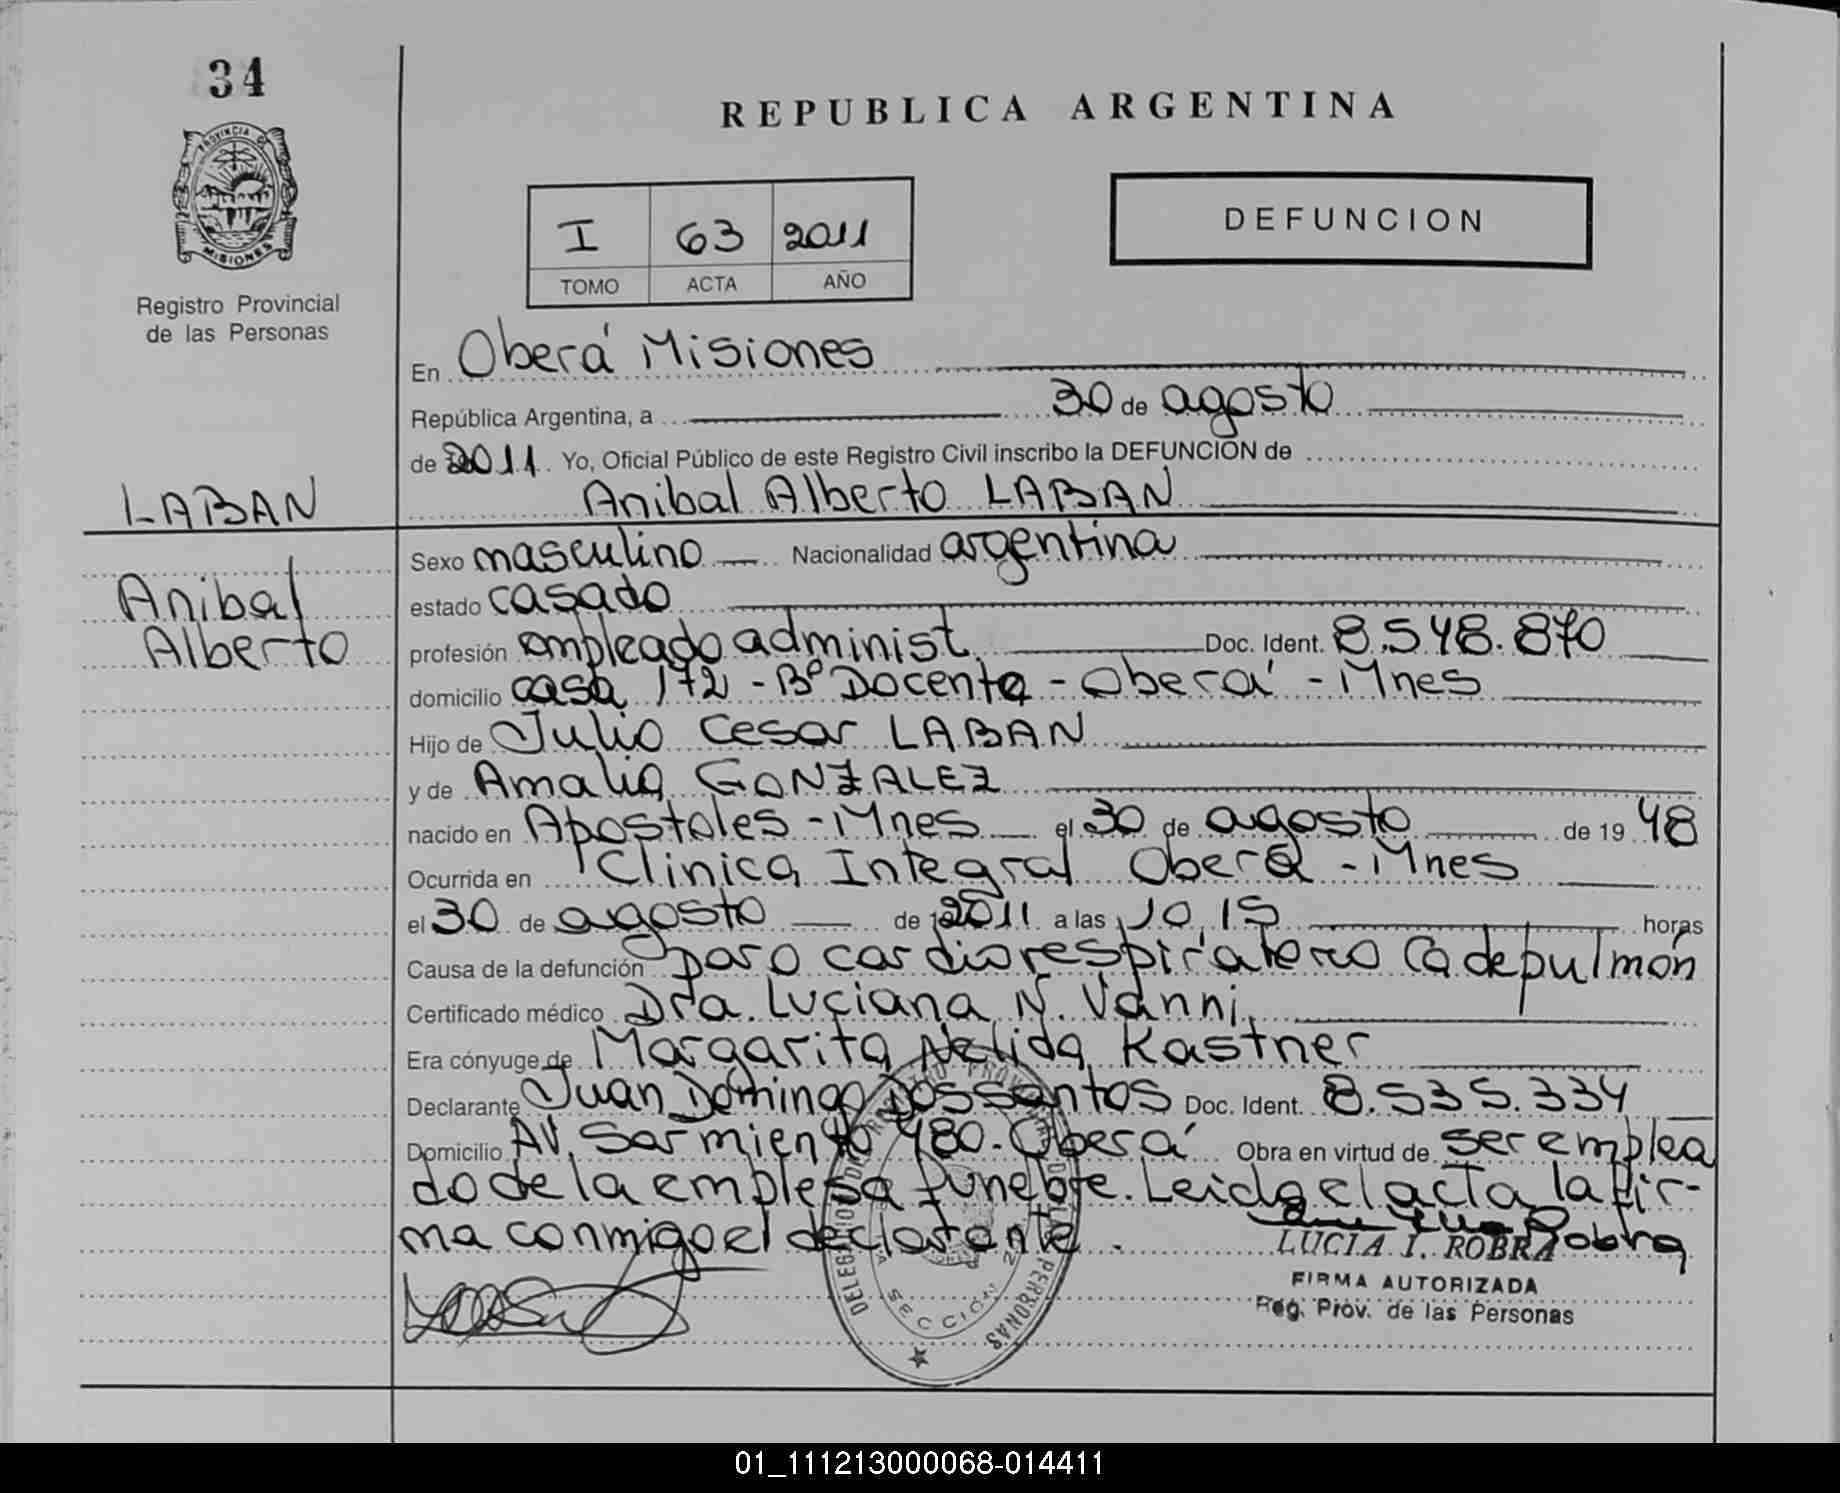 34
PROVINCIA DE
MISIONES
Registro Provincial
de las Personas
REPUBLICA ARGENTINA
I 63 2011
TOMO ACTA AÑO
DEFUNCION
En Oberá Misiones
República Argentina, a 30 de agosto
de 2011. Yo, Oficial Público de este Registro Civil inscribo la DEFUNCION de
LABAN
Anibal Alberto LABAN
Sexo masculino Nacionalidad argentina
Anibal
estado casado
Alberto
profesión empleado administ. Doc. Ident. 8.548.870
domicilio casa 172 - Bº Docente - Oberá - Mnes
Hijo de Julio Cesar LABAN
y de Amalia GONZALEZ
nacido en Apostoles - Mnes el 30 de agosto de 19 48
Ocurrida en Clinica Integral Oberá - Mnes
el 30 de agosto de 2011 a las 10,15 horas
Causa de la defunción paro cardiorespiratorio Ca de pulmón
Certificado médico Dra. Luciana N. Vanni.
Era cónyuge de Margarita Nelida Kastner
Declarante Juan Domingo Dos santos Doc. Ident. 8.535.334
Domicilio Av. Sarmiento 480 - Oberá Obra en virtud de ser emplea
do de la emplesa funebre. Leida el acta la fir-
ma conmigo el declarante.
LUCIA I. ROBRA
FIRMA AUTORIZADA
Reg. Prov. de las Personas
SECCION 2
PERSONAS
01_111213000068-014411